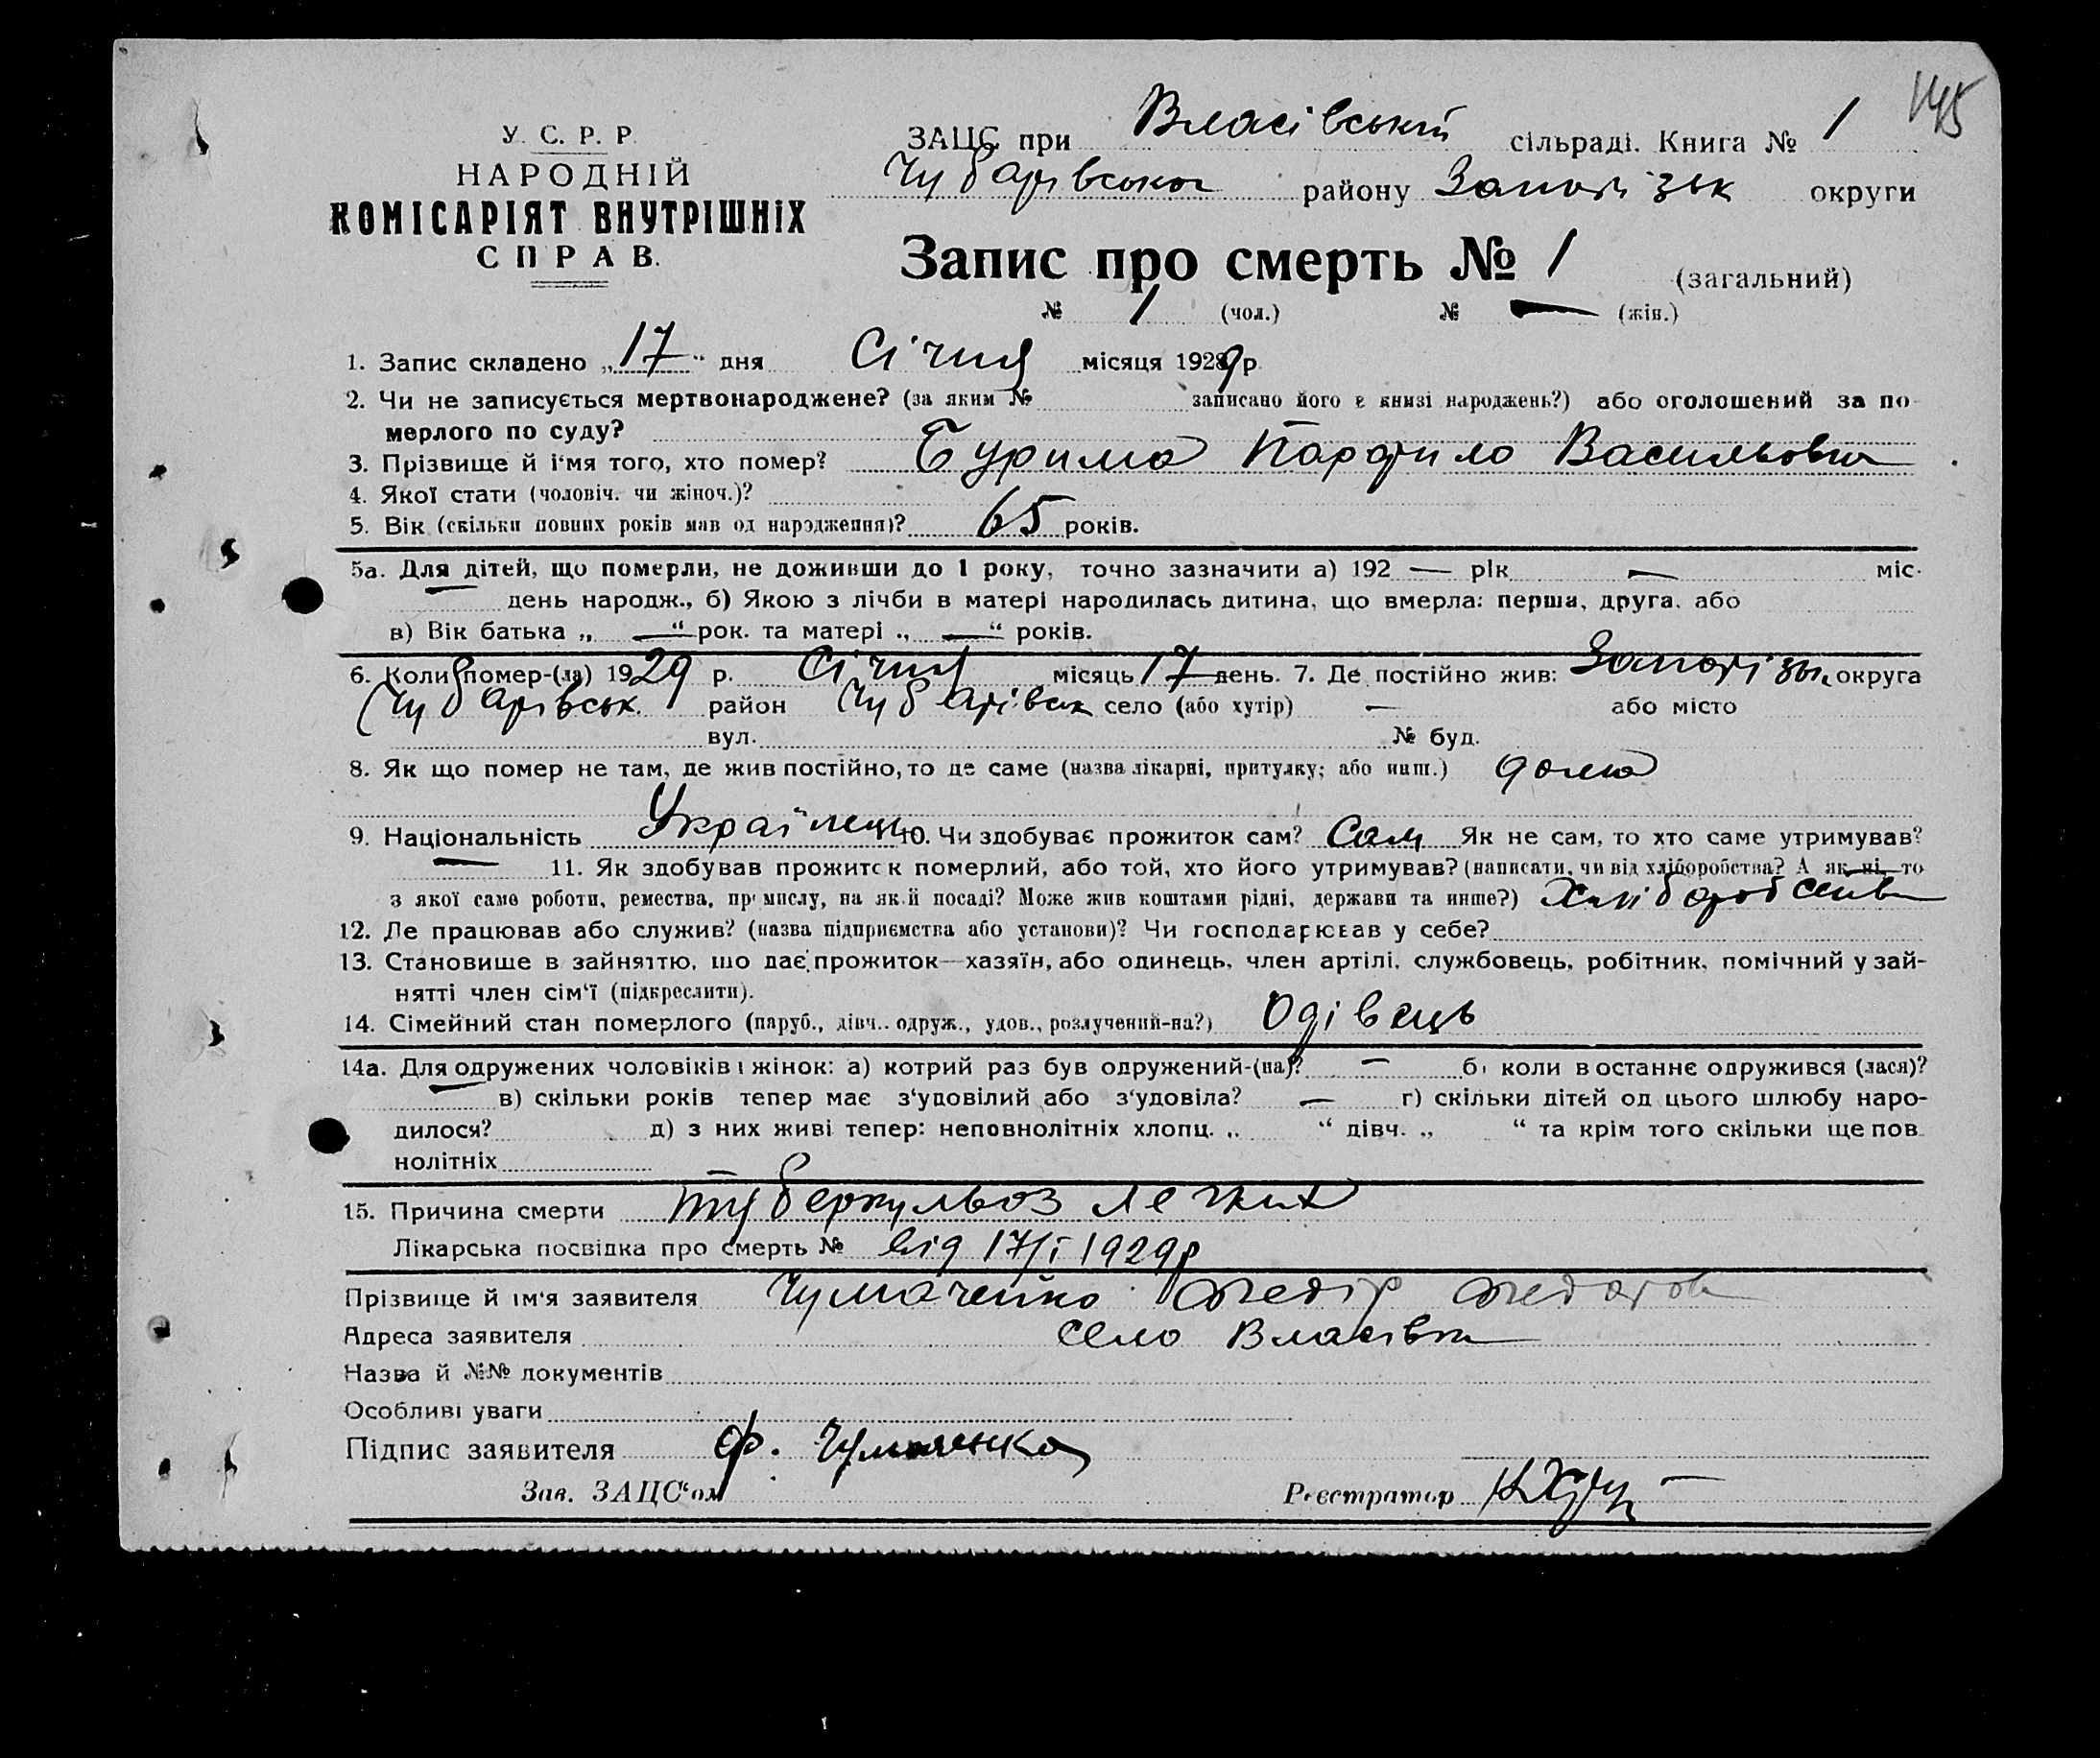 145
У. С. Р. Р.
НАРОДНІЙ
КОМІСАРІЯТ ВНУТРІШНІХ
СПРАВ.
ЗАЦС при Власівський сільраді. Книга № 1
Чубарівського району Запоріжк округи
Запис про смерть № 1 (загальний)
№ 1 (чол.) № — (жін.)
1. Запис складено „17“ дня Січня місяця 1929 р.
2. Чи не записується мертвонароджене? (за яким № записано його в книзі народжень?) або оголошений за по-
мерлого по суду?
3. Прізвище й і'мя того, хто помер? Бурима Парфило Васильович
4. Якої стати (чоловіч. чи жіноч.)?
5. Вік (скільки повних років мав од народження)? 65 років.
5а. Для дітей, що померли, не доживши до 1 року, точно зазначити а) 192 — рік — міс.
— день народж., б) Якою з лічби в матері народилась дитина, що вмерла: перша, друга, або
в) Вік батька „ — “ рок. та матері „ — “ років.
6. Коли помер-(ла) 1929 р. Січня місяць 17 день. 7. Де постійно жив: Запоріж. округа
Чубарівськ. район Чубарівськ село (або хутір) — або місто
вул. № буд.
8. Як що помер не там, де жив постійно, то де саме (назва лікарні, притулку; або инш.) дома
9. Національність Українець 10. Чи здобуває прожиток сам? Сам Як не сам, то хто саме утримував?
— 11. Як здобував прожиток померлий, або той, хто його утримував? (написати, чи від хліборобства? А як ні, то
з якої саме роботи, ремества, промислу, на якій посаді? Може жив коштами рідні, держави та инше?) Хліборобств
12. Де працював або служив? (назва підприємства або установи)? Чи господарював у себе?
13. Становище в зайняттю, що дає прожиток—хазяїн, або одинець, член артілі, службовець, робітник, помічний у зай-
нятті член сім'ї (підкреслити).
14. Сімейний стан померлого (паруб., дівч., одруж., удов., розлучений-на?) Одівець
14а. Для одружених чоловіків і жінок: а) котрий раз був одружений-(на)? — б) коли востаннє одружився (лася)?
— в) скільки років тепер має з'удовілий або з'удовіла? — г) скільки дітей од цього шлюбу наро-
дилося? д) з них живі тепер: неповнолітніх хлопц. „ “ дівч. „ “ та крім того скільки ще пов-
нолітніх —
15. Причина смерти туберкульоз легких
Лікарська посвідка про смерть № від 17/І 1929р
Прізвище й ім'я заявителя Чумаченко Федір Федоров
Адреса заявителя село Власівка
Назва й №№ документів
Особливі уваги
Підпис заявителя Ф. Чумаченко
Зав. ЗАЦС'ом Реєстратор